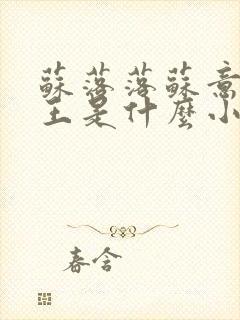 蘇落落蘇意
主是什麼小
春含